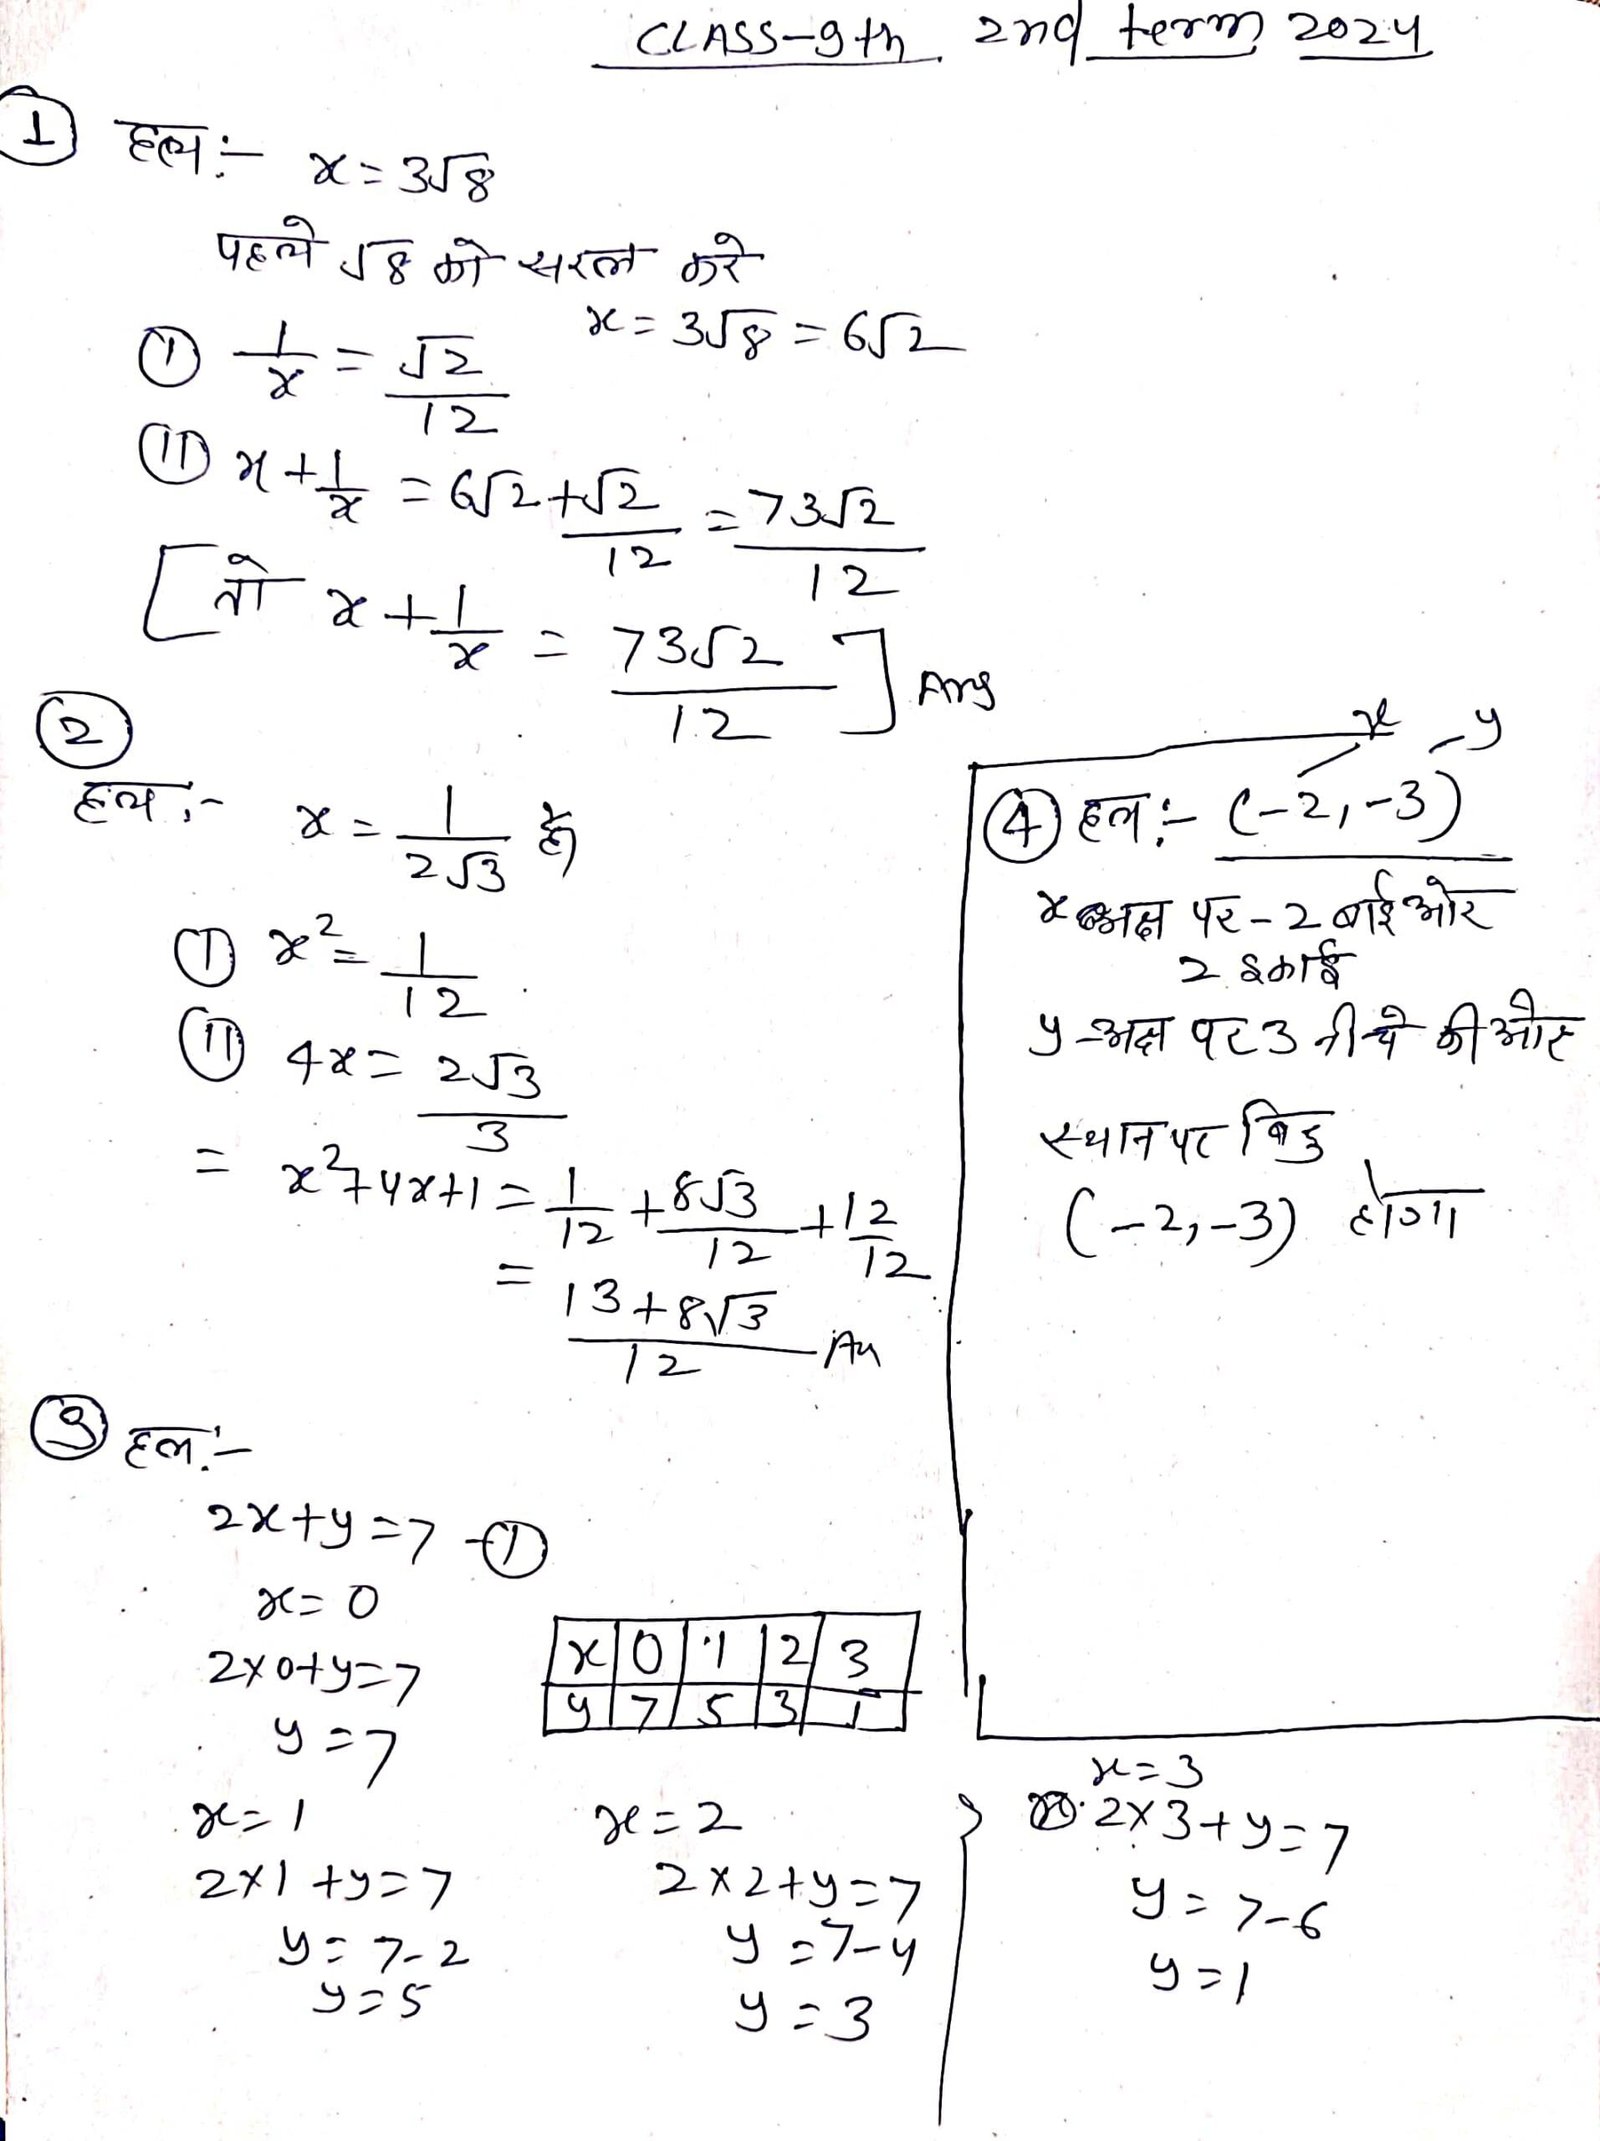 CLASS-9th 2nd term 2024
① हल :- x = 3√8
पहले √8 को सरल करे
x = 3√8 = 6√2
① 1/x = √2/12
⑪ x + 1/x = 6√2 + √2/12 = 73√2/12
[तो x + 1/x = 73√2/12] Ans
②
हल :- x = 1/2√3 है
① x² = 1/12
⑪ 4x = 2√3/3
= x² + 4x + 1 = 1/12 + 8√3/12 + 12/12
= 13 + 8√3/12 An
③ हल :-
2x + y = 7 - ①
x = 0
2 x 0 + y = 7
y = 7
x | 0 | 1 | 2 | 3
y | 7 | 5 | 3 | 1
x = 1
2 x 1 + y = 7
y = 7 - 2
y = 5
x = 2
2 x 2 + y = 7
y = 7 - 4
y = 3
x = 3
2 x 3 + y = 7
y = 7 - 6
y = 1
x y
④ हल :- (-2, -3)
x अक्ष पर - 2 बाई ओर
2 इकाई
y-अक्ष पर 3 नीचे की ओर
स्थान पर बिंदु
(-2, -3) होगा